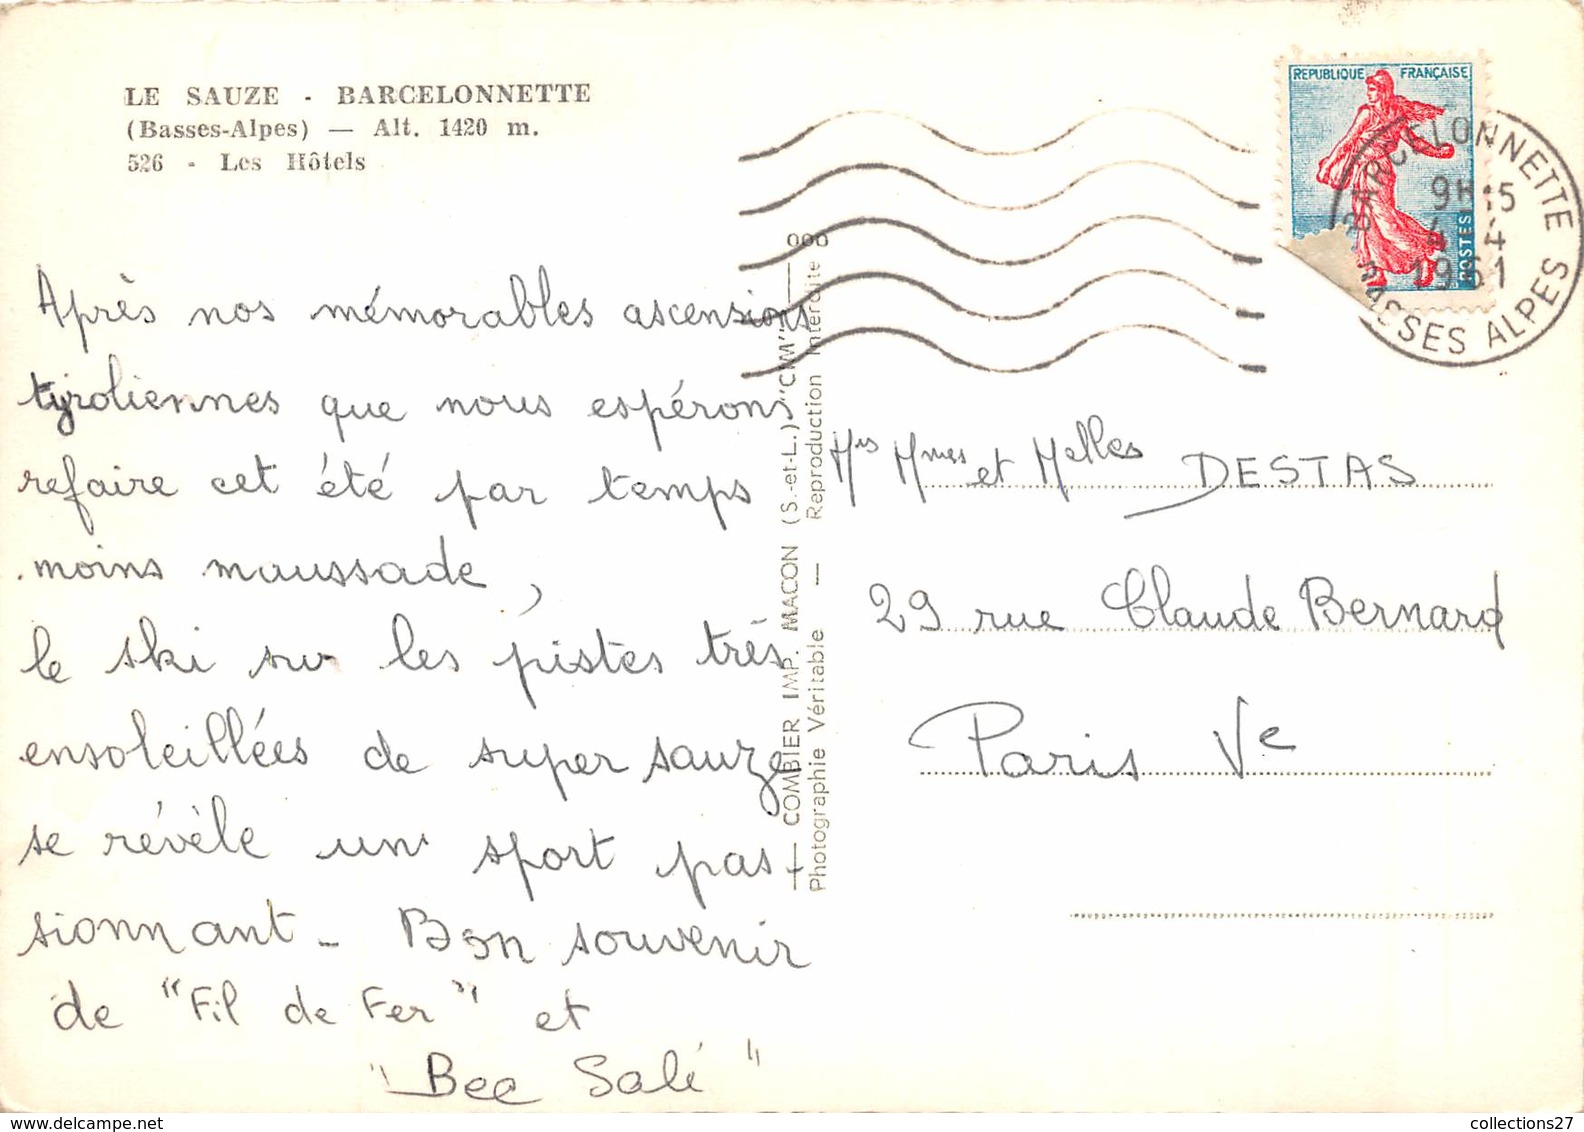 LE SAUZE - BARCELONNETTE
(Basses-Alpes) — Alt. 1420 m.
526 - Les Hôtels
REPUBLIQUE FRANÇAISE
POSTES
BARCELONNETTE
9H15
4 - 4
1961
BASSES ALPES
Après nos mémorables ascensions
tyroliennes que nous espérons
refaire cet été par temps
moins maussade,
le ski sur les pistes très
ensoleillées de super sauze
se révèle un sport pas-
sionnant - Bon souvenir
de "Fil de Fer" et
"Bec Salé"
— COMBIER IMP. MACON (S.-et-L.) "CIM" —
Photographie Véritable — Reproduction Interdite
000
Mrs Mmes et Melles DESTAS
29 rue Claude Bernard
Paris Ve
collections27